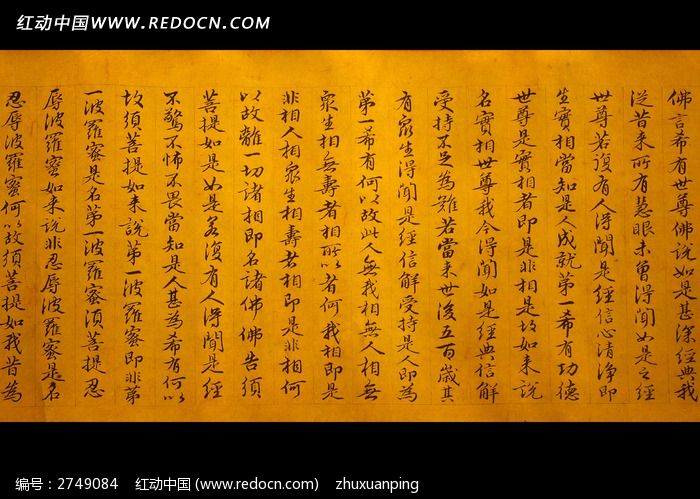 红动中国 WWW.REDOCN.COM
佛言希有世尊佛說如是甚深經典我
從昔來所有慧眼未曾得聞如是之經
世尊若復有人得聞是經信心清淨即
生實相當知是人成就第一希有功德
世尊是實相者即是非相是故如來說
名實相世尊我今得聞如是經典信解
受持不足為難若當來世後五百歲其
有眾生得聞是經信解受持是人即為
第一希有何以故此人無我相無人相無
眾生相無壽者相所以者何我相即是
非相人相眾生相壽者相即是非相何
以故離一切諸相即名諸佛佛告須
菩提如是如是若復有人得聞是經
不驚不怖不畏當知是人甚為希有何以
故須菩提如來說第一波羅蜜即非第
一波羅蜜是名第一波羅蜜須菩提忍
辱波羅蜜如來說非忍辱波羅蜜是名
忍辱波羅蜜何以故須菩提如我昔為
编号：2749084 红动中国 (www.redocn.com) zhuxuanping